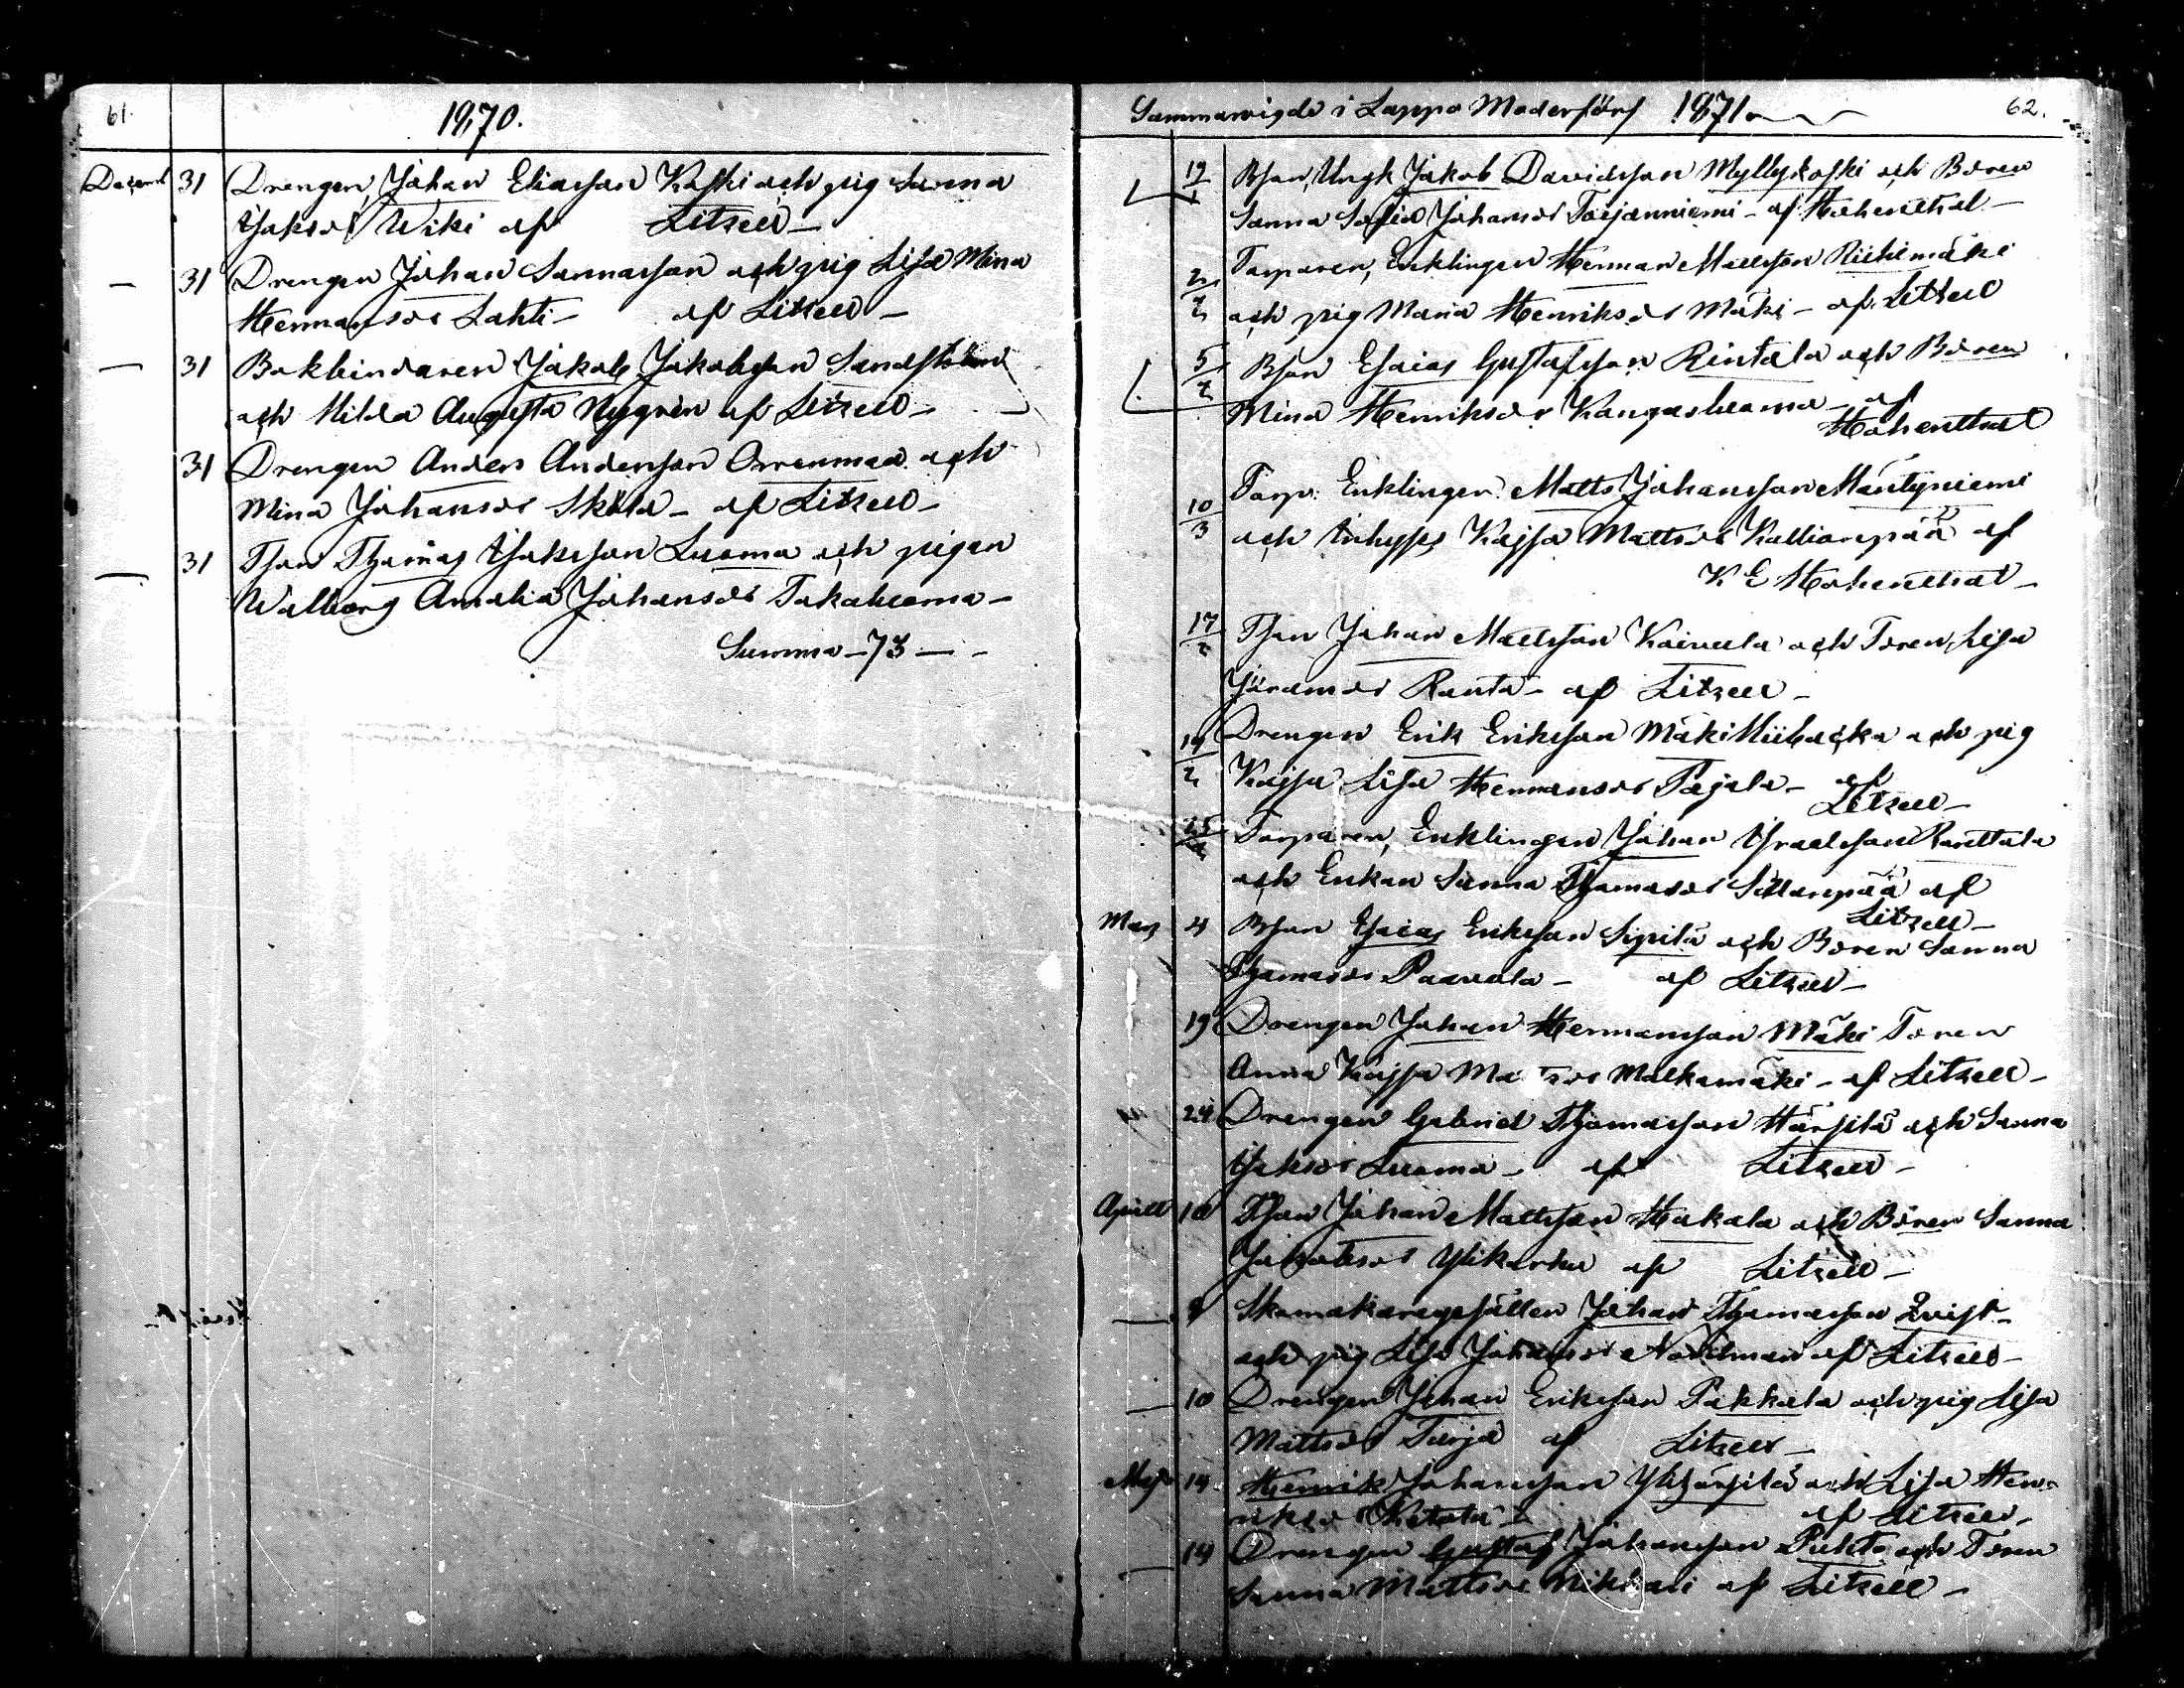 61.
1870.
Decemb 31 Drengen, Johan Eliasson Kaski och pig Sanna
Isaksdr Wiki af Litzell —
— 31 Drengen Johan Sannasson och pig Lisa Mina
Hermansdr Lahti — af Litzell —
— 31 Bokbindaren Jakob Jakobsson Sandström
och Hilda Augusta Nygrén af Litzell —
31 Drengen Anders Andersson Orrenmaa och
Mina Johansdr Skåla — af Litzell —
— 31 Tson Thomas Isaksson Luoma och pigan
Walborg Amalia Johansdr Takaluoma —
Summa — 73 —
Sammanvigde i Lappo Moderförs 1871
62.
19/1 Bson, Ungk Jakob Davidsson Myllykoski och Bdren
Sanna Sofia Johansdr Tarjanniemi — af Hohenthal —
2/2 Torparen, Enklingen Herman Mattsson Riihimäki
och pig Maria Henriksdr Mäki — af Litzell
5/2 Bson Esaias Gustafsson Rintala och Bdren
Mina Henriksdr Kangasluoma — af
Hohenthal
10/3 Torp. Enklingen Matts Johansson Mäntyniemi
och Inhyses Kajsa Mattsdr Kallionpää af
K E Hohenthal —
17/2 Tson Johan Mattsson Koivula och Tdren, Lisa
Jöransdr Ranta — af Litzell —
19/2 Drengen Erik Eriksson Mäki och pig
Kajsa Lisa Hermansdr Pajala — af
Litzell —
25/2 Torparen, Enklingen Johan Israelsson Ranttala
och Enkan Sanna Thomasdr Sillanpää af
Litzell —
Mars 4 Bson Esaias Eriksson Sipilä och Bdren Sanna
Thomasdr Paavola — af Litzell —
19 Drengen Johan Hermansson Mäki Tdren
Anna Kajsa Matsdr Malkamäki — af Litzell —
24 Drengen Gabriel Thomasson Härsilä och Sanna
Isaksdr Luoma — af Litzell —
Aprill 10 Tson Johan Mattsson Hakala och Bdren Sanna
Jakobsdr Ylikarhu af Litzell —
— 9 Skomakaregesällen Johan Thomasson Qvist —
och pig Lisa Johansdr Nordman af Litzell —
— 10 Drengen Johan Eriksson Pakkala och pig Lisa
Mattsdr Turja af Litzell —
Maj 14 Henrik Johansson och Lisa Hen-
riksdr Ketola af Litzell —
— 14 Drengen Gustaf Johansson Puhto och Tdren
Sanna Mattsdr af Litzell —